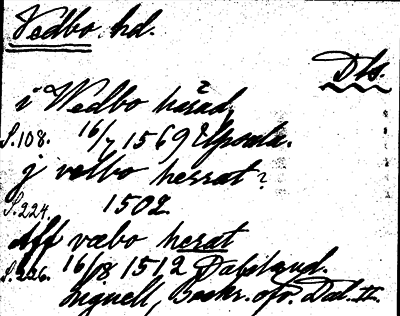 Vedbo hd.
Dls.
i Wedbo härad
S. 108. 16/7 1569 Upsala.
j vetbo herrat?
S. 224. 1502
Aff væbo herat
S. 226. 16/8 1512 Dalsland.
Lignell, Beskr. öfv. Dal. II.